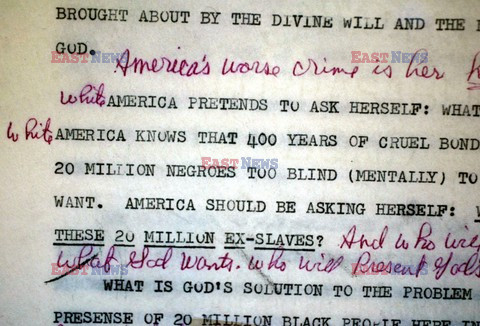 BROUGHT ABOUT BY THE DIVINE WILL AND THE
GOD.
America's worse crime is her
white AMERICA PRETENDS TO ASK HERSELF: WHAT
white AMERICA KNOWS THAT 400 YEARS OF CRUEL BOND
20 MILLION NEGROES TOO BLIND (MENTALLY) TO
WANT. AMERICA SHOULD BE ASKING HERSELF:
THESE 20 MILLION EX-SLAVES? And who will
what God wants. who will Present God's
WHAT IS GOD'S SOLUTION TO THE PROBLEM
PRESENSE OF 20 MILLION BLACK PEOPLE HERE IN
EASTNEWS
EASTNEWS
EASTNEWS
EASTNEWS
EASTNEWS
EASTNEWS
EASTNEWS
EASTNEWS